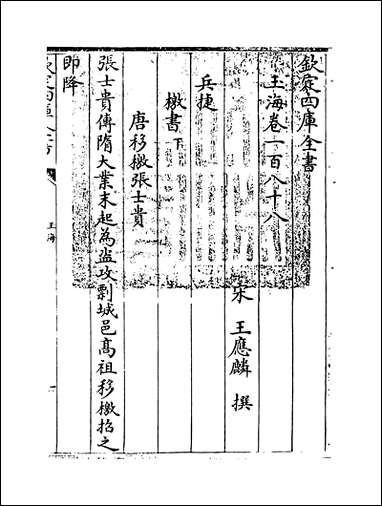 欽定四庫全書
玉海卷一百八十八
宋 王應麟 撰
兵捷
檄書下
唐移檄張士貴
張士貴傳隋大業末起為盜攻剽城邑髙祖移檄招之
即降
玉海